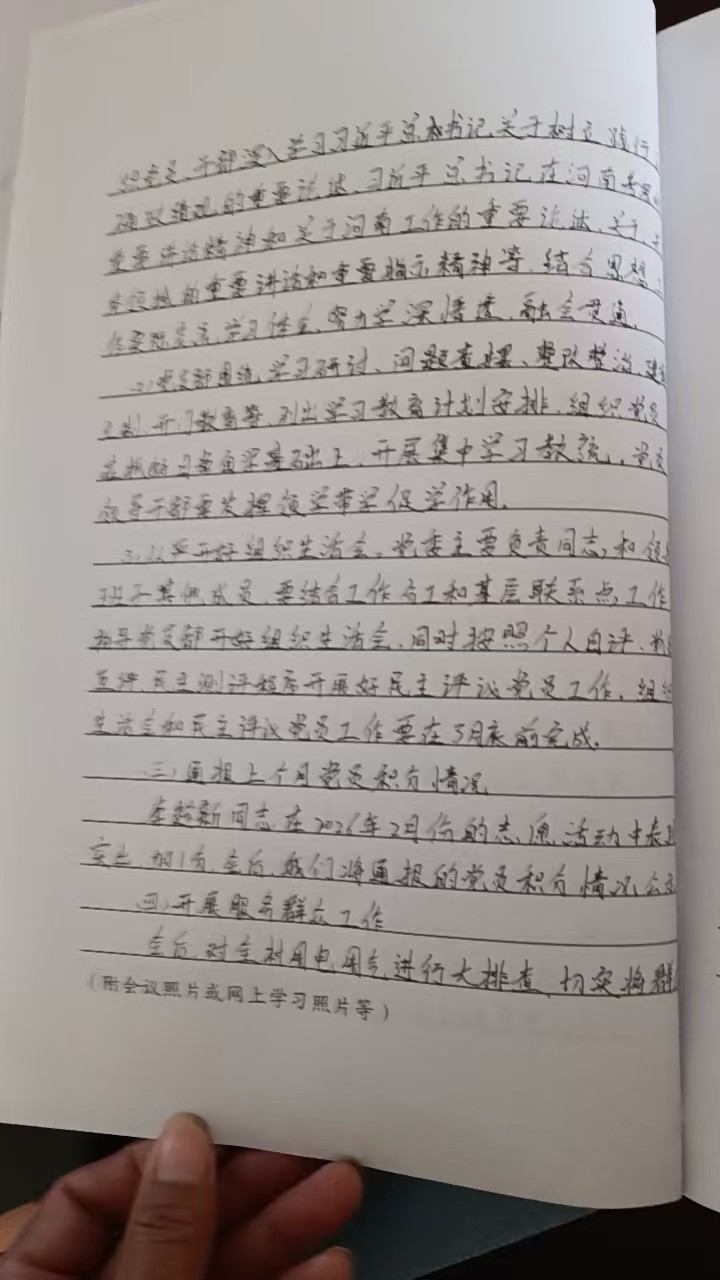 织党员、干部深入学习习近平总书记关于树立践行
确政绩观的重要论述、习近平总书记在河南考察
重要讲话精神和关于河南工作的重要论述、关于
各领域的重要讲话和重要指示精神等,结合思想
作实际交流学习体会,努力学深悟透、融会贯通。
(2)党支部围绕学习研讨、问题查摆、整改整治、建
立制、开门教育等,列出学习教育计划安排,组织党员
在抓好习惯自学基础上,开展集中学习教育,党
领导干部要发挥领学带学促学作用。
(3)从严开好组织生活会。党委主要负责同志和领
班子其他成员,要结合工作分工和基层联系点工作
指导党支部开好组织生活会,同时按照个人自评、党员
互评、民主测评程序开展好民主评议党员工作,组织
生活会和民主评议党员工作要在3月底前完成。
三、通报上个月党员积分情况
李超新同志在2026年2月份的志愿活动中表现
突出,加1分,会后,我们将通报的党员积分情况公
四、开展服务群众工作
会后,对全村用电用气进行大排查,切实将群
(附会议照片或网上学习照片等)